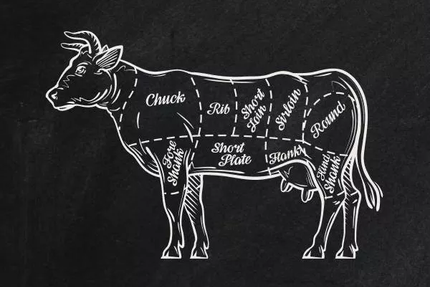 Chuck
Rib
Short
Loin
Sirloin
Round
Fore
Shank
Short
Plate
Flank
Hind
Shank